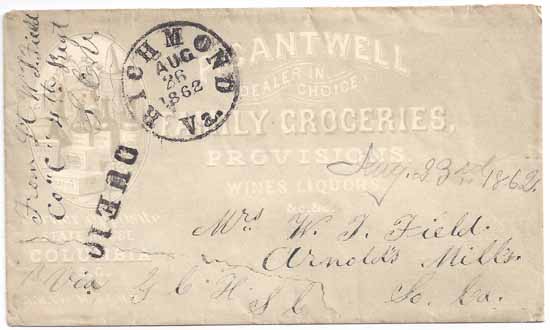 CANTWELL
DEALER IN
CHOICE
FAMILY GROCERIES,
PROVISIONS
WINES, LIQUORS,
&c. &c.
STATE
COLUMBIA
RICHMOND Va.
AUG
26
1862
DUE 10
From Lt W. J. Field
Co "C" 4th Regt
S.C.V.
Aug. 23rd 1862.
Mrs W. J. Field.
Arnold's Mills.
Via G C H S C So. Ca.